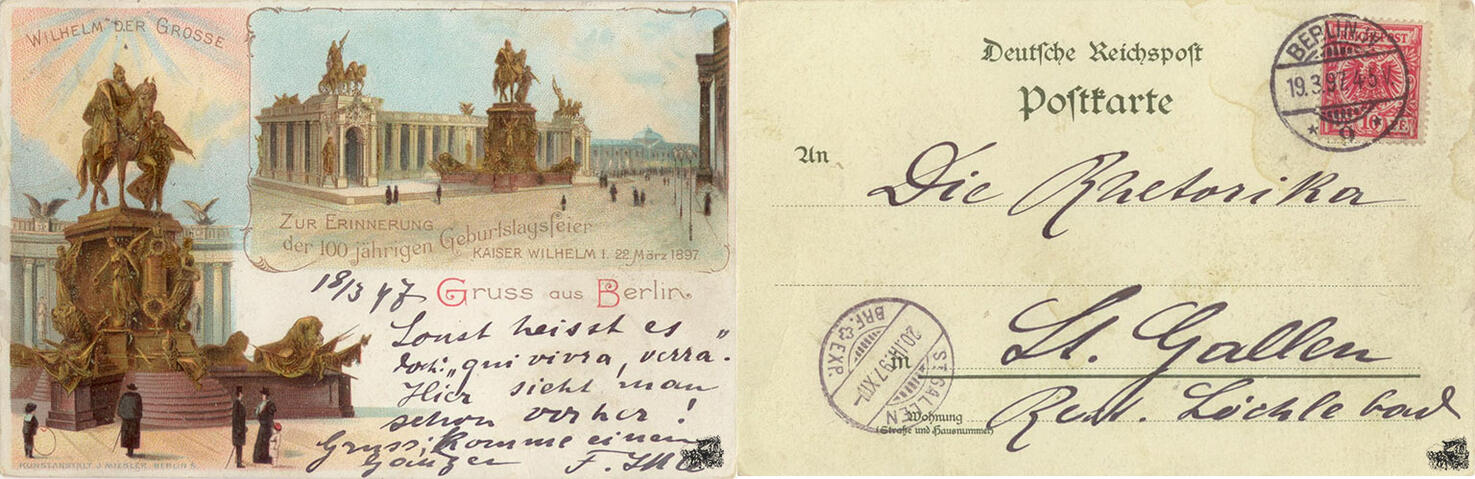 WILHELM DER GROSSE
ZUR ERINNERUNG
der 100 jährigen Geburtstagsfeier
KAISER WILHELM I. 22. März 1897
18/3 97
Gruss aus Berlin
Sonst heisst es
doch: „qui vivra, verra".
Hier sieht man
schon vorher!
Gruss, komme einen
Ganzen
KUNSTANSTALT J. MIESLER. BERLIN S.
Deutsche Reichspost
Postkarte
REICHSPOST
10
BERLIN
19.3.97. 4-5 V.
An
Die Rhetorika
ST. GALLEN
20.III.97.XII-
BRF. EXP.
in
St. Gallen
Wohnung
(Straße und Hausnummer)
Rest. Löchlebad